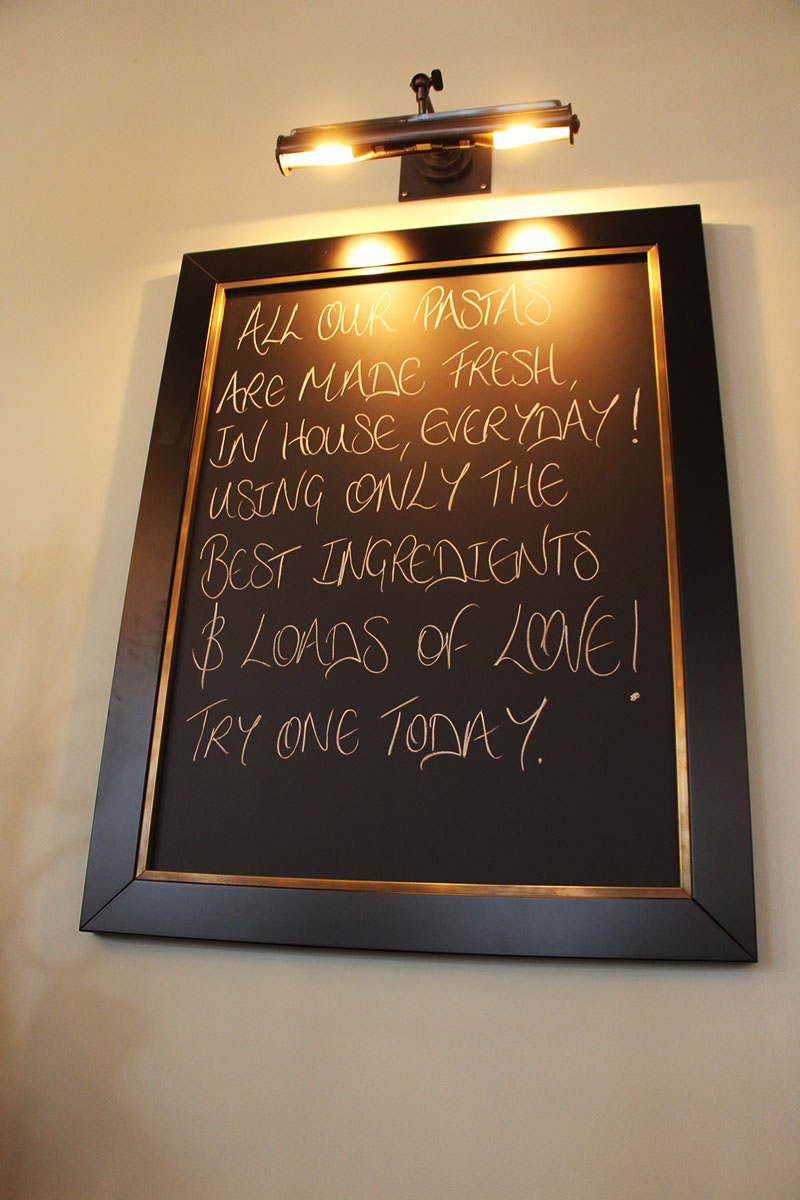 ALL OUR PASTAS
ARE MADE FRESH,
IN HOUSE, EVERYDAY!
USING ONLY THE
BEST INGREDIENTS
& LOADS OF LOVE!
TRY ONE TODAY.